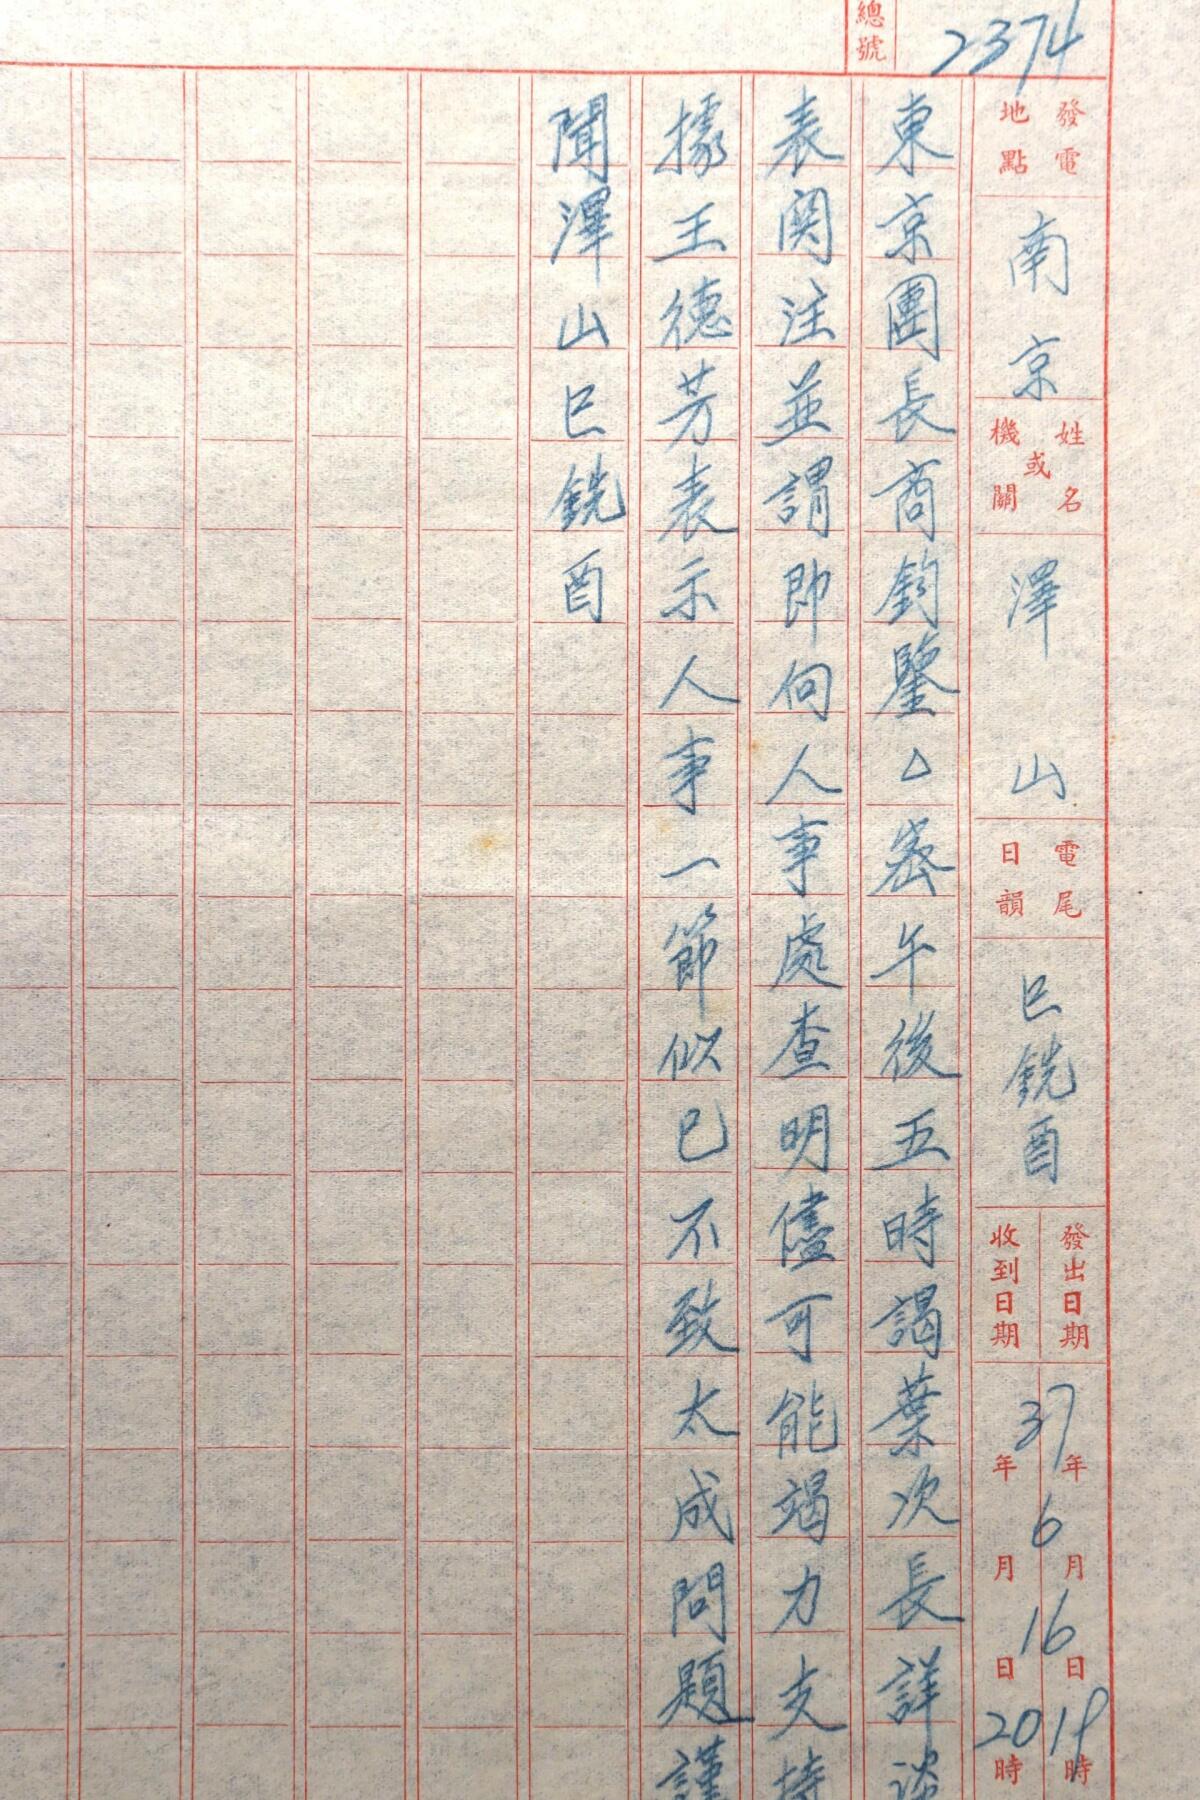 總號 2374
發電地點 南京
姓名或機關 澤山
電尾日韻 巳銑酉
發出日期 收到日期 37年6月16日 20時 19時
東京團長商鈞鑒△密午後五時謁葉次長詳談
表関注並謂即向人事處查明儘可能竭力支持
據王德芳表示人事一節似已不致太成問題謹
聞澤山巳銑酉